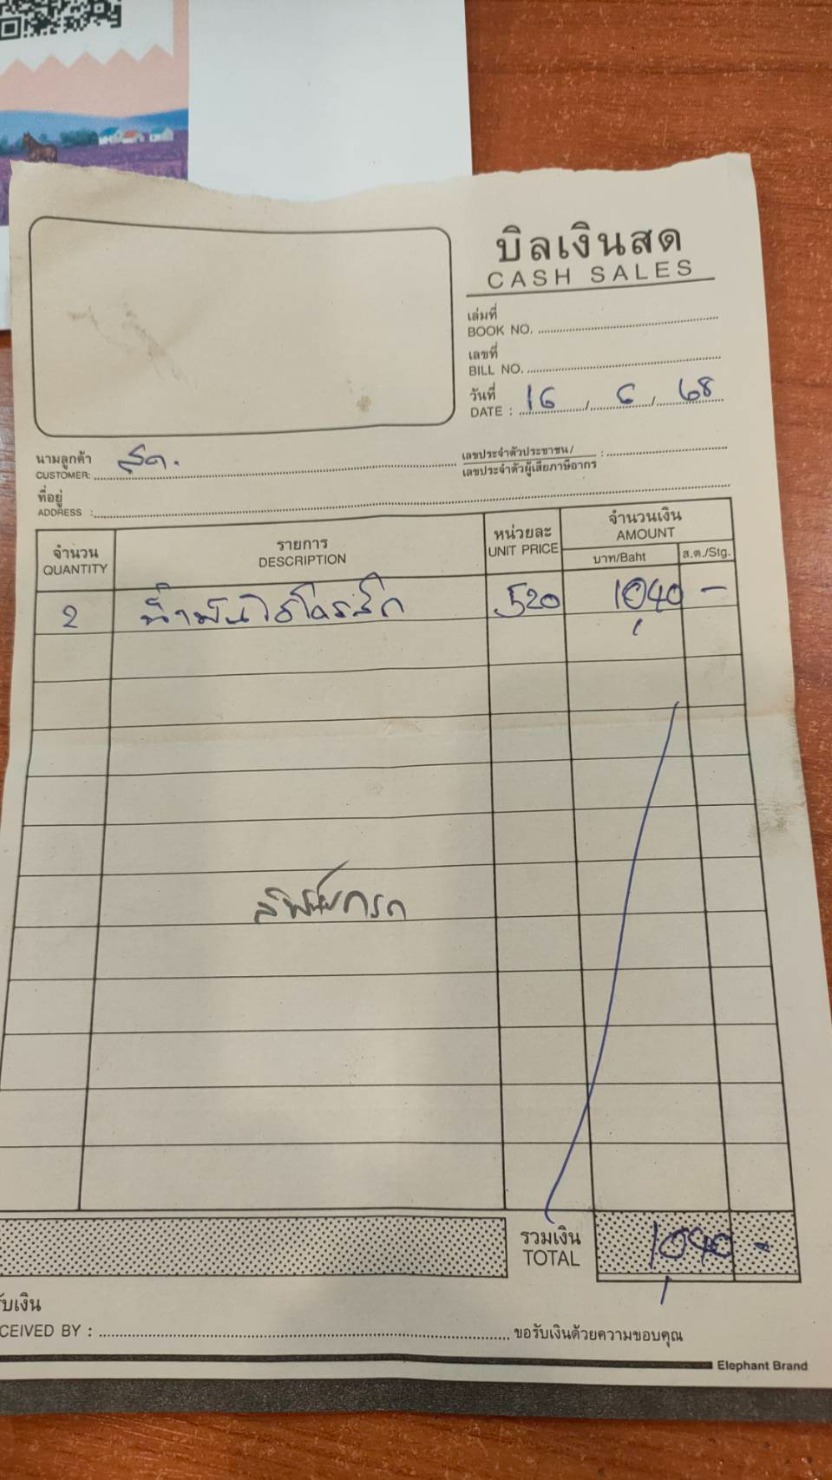 บิลเงินสด
CASH SALES
เล่มที่
BOOK NO.
เลขที่
BILL NO.
วันที่
DATE : 16 / 6 / 68
นามลูกค้า สด.
CUSTOMER:
เลขประจำตัวประชาชน/ :
เลขประจำตัวผู้เสียภาษีอากร
ที่อยู่
ADDRESS :
จำนวน รายการ หน่วยละ จำนวนเงิน
QUANTITY DESCRIPTION UNIT PRICE AMOUNT
บาท/Baht ส.ต./Stg.
2 น้ำมันไฮโดรลิก 520 1040 -
รวมเงิน
TOTAL 1040 -
รับเงิน
CEIVED BY : ขอรับเงินด้วยความขอบคุณ
Elephant Brand